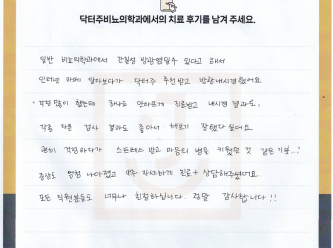 닥터주비뇨의학과에서의 치료 후기를 남겨 주세요.
일반 비뇨의학과에서 간질성 방광염일수 있다고 해서
인터넷 카페 알아보다가 닥터주 추천받고 방광내시경했어요
걱정 많이 했는데 하나도 안아프게 진료받고 내시경 결과도,
각종 다른 검사 결과도 좋아서 해보기 잘했다 싶어요.
괜히 걱정하다가 스트레스 받고 마음의 병을 키웠던 것 같은 기분..?
증상도 엄청 나아졌고 아주 자세하게 진료+상담해주셨어요.
모든 직원분들도 너무나 친절하십니다. 정말 감사합니다!!